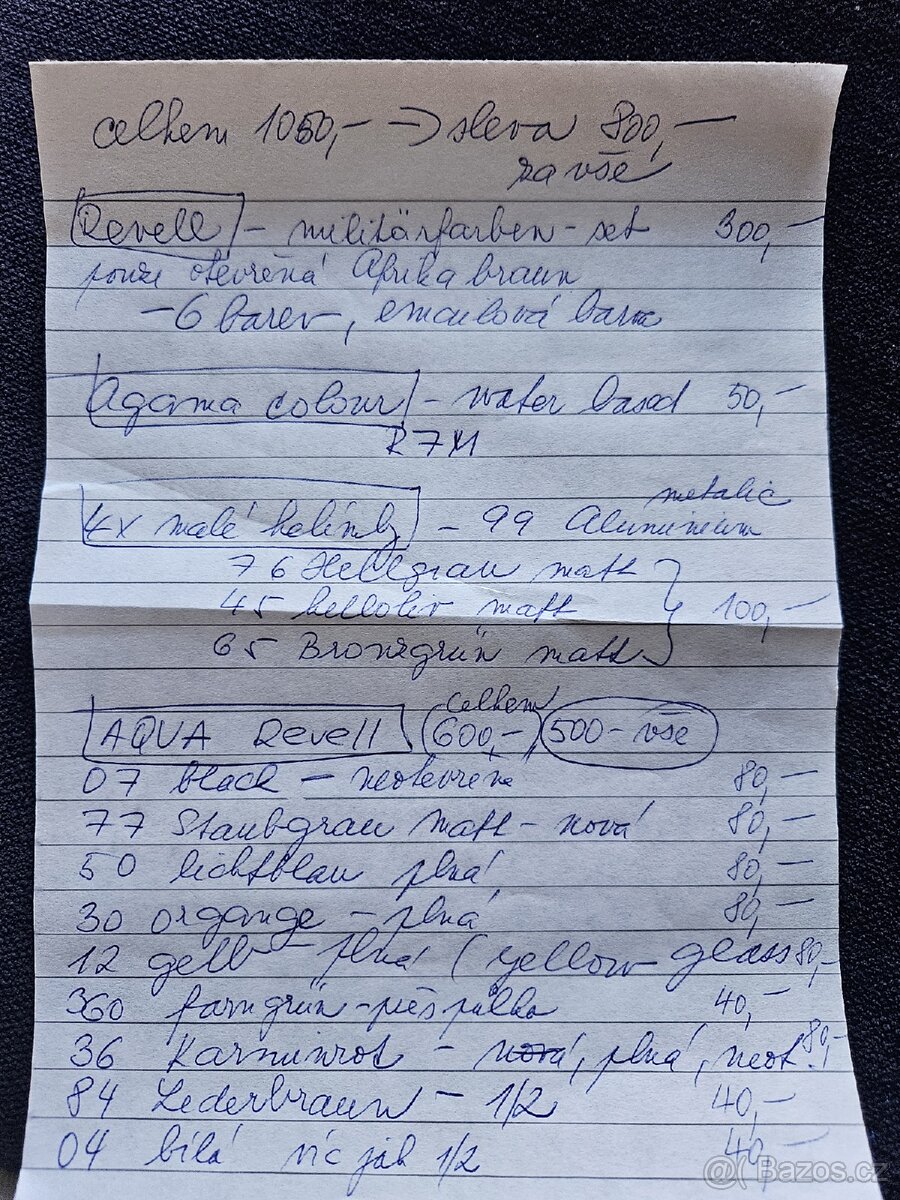 celkem 1050,- → sleva 800,-
za vše
Revell - militärfarben - set 300,-
pouze otevřená Afrika braun
- 6 barev, emailová barva
Agama colour - water based 50,-
R7M
4x malé kelímky - 99 Aluminium metalic
76 Hellgrau matt
45 helloliv matt 100,-
65 Bronzgrün matt
AQUA Revell celkem 600,- 500- vše
07 black - neotevřená 80,-
77 Staubgrau matt - nová 80,-
50 lichtblau plná 80,-
30 organge - plná 80,-
12 gelb - plná (yellow glass 80,-
360 farngrün - přes půlka 40,-
36 Karminrot - nová, plná, neot. 80,-
84 Lederbraun - 1/2 40,-
04 bílá víc jak 1/2 40,-
@ Bazos.cz